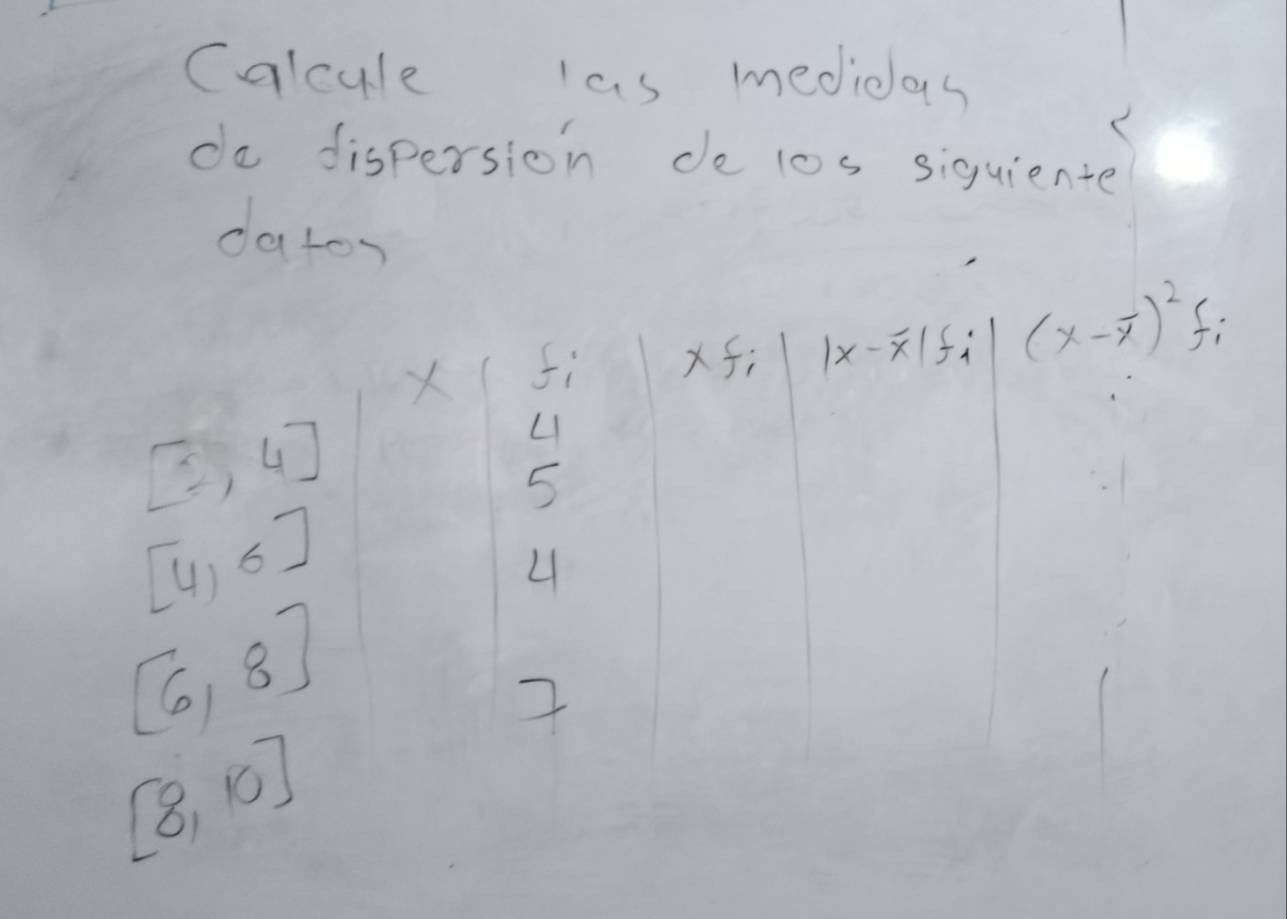 Calcule las medidas
de dispersión de los siguiente
datos
x | fi | x fi | |x - x̄| fi | (x - x̄)² fi
[2, 4] 4
[4, 6] 5
[6, 8] 4
[8, 10] 7